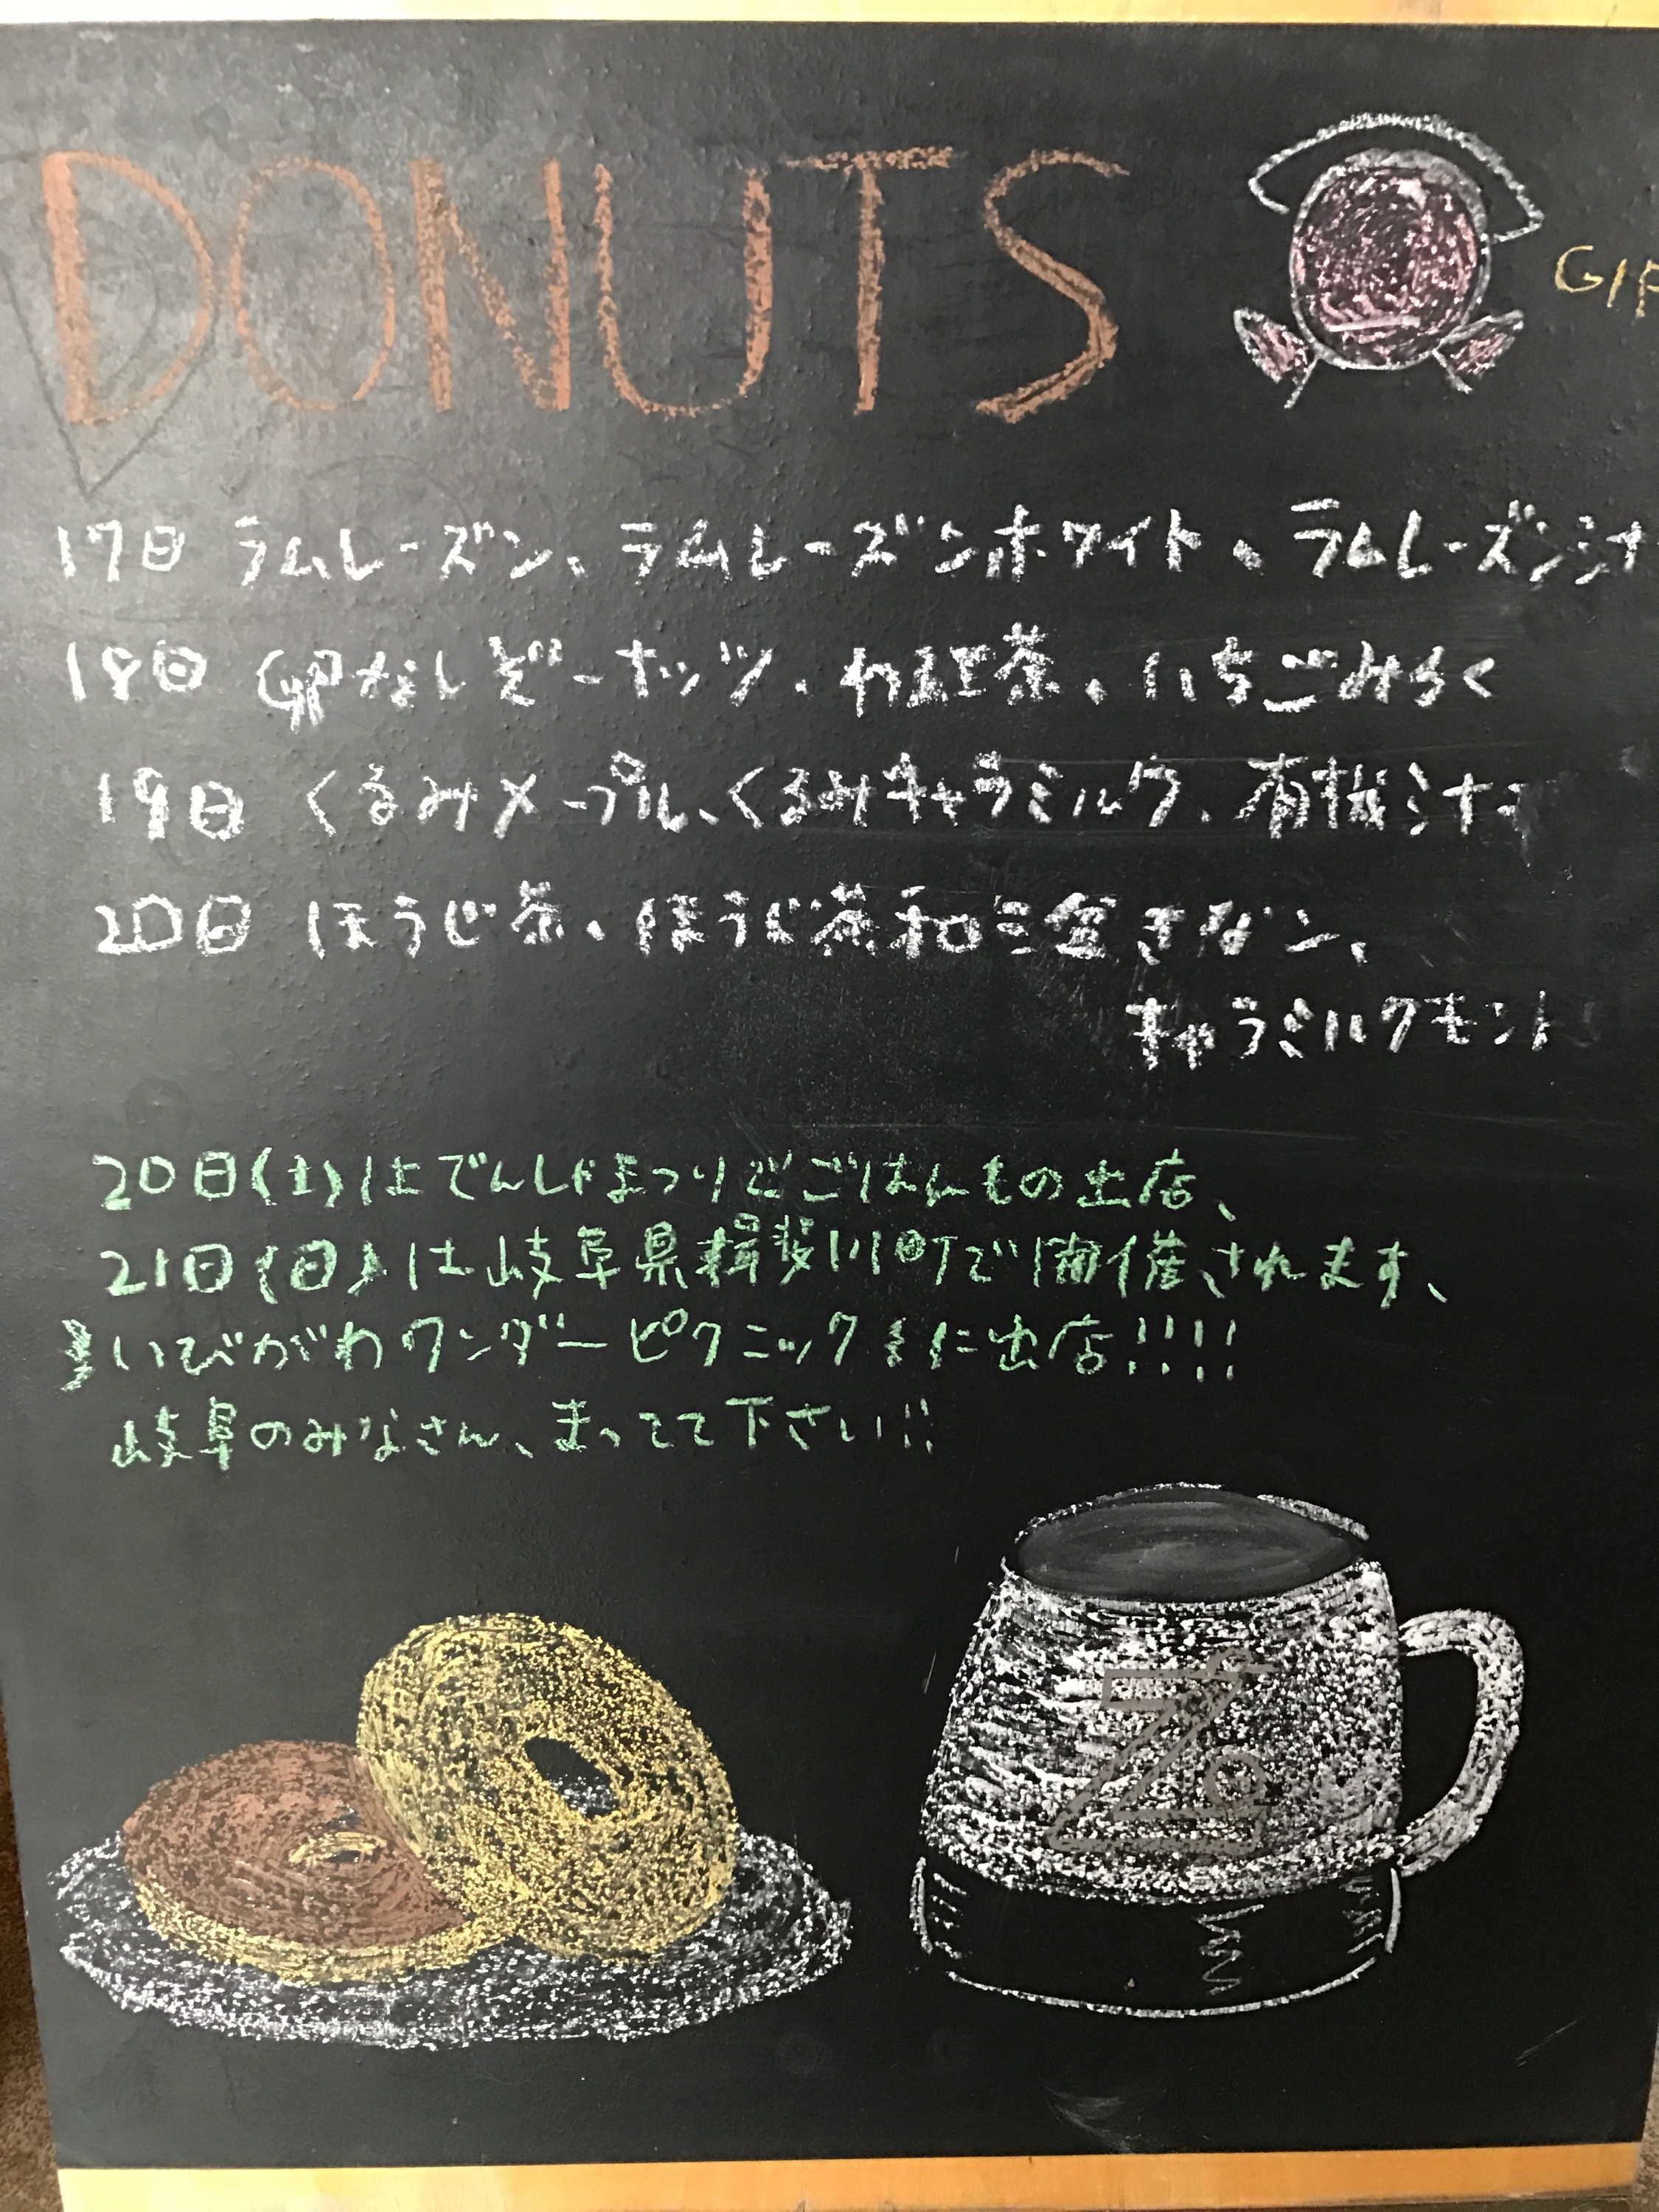 DONUTS
GIF
17日 ラムレーズン、ラムレーズンホワイト、ラムレーズンシナ
18日 卵なしどーナッツ、和紅茶、いちごみるく
19日 くるみメープル、くるみキャラミルク、有機シナモ
20日 ほうじ茶、ほうじ茶和三盆きなこ、
キャラミルクモント
20日(土)はでんしゃまつりどごはんもの出店、
21日(日)は岐阜県揖斐川町で開催されます、
いびがわワンダーピクニック に出店!!!!
岐阜のみなさん、まってて下さい!!